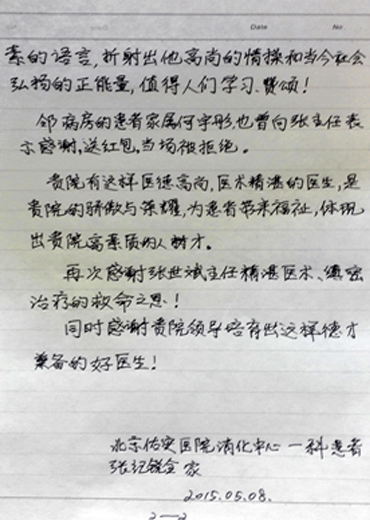 Date No
素的语言,折射出他高尚的情操和当今社会
弘扬的正能量,值得人们学习、赞颂!
邻病房的患者家属何宇彤,也曾向张主任表
示感谢,送红包,当场被拒绝。
贵院有这样医德高尚,医术精湛的医生,是
贵院的骄傲与荣耀,为患者带来福祉,体现
出贵院高素质的人树才。
再次感谢张世斌主任精湛医术、缜密
治疗的救命之恩!
同时感谢贵院领导培育出这样德才
兼备的好医生!
北京佑安医院消化中心一科患者
张纪锐全家
2015.05.08.
2—2